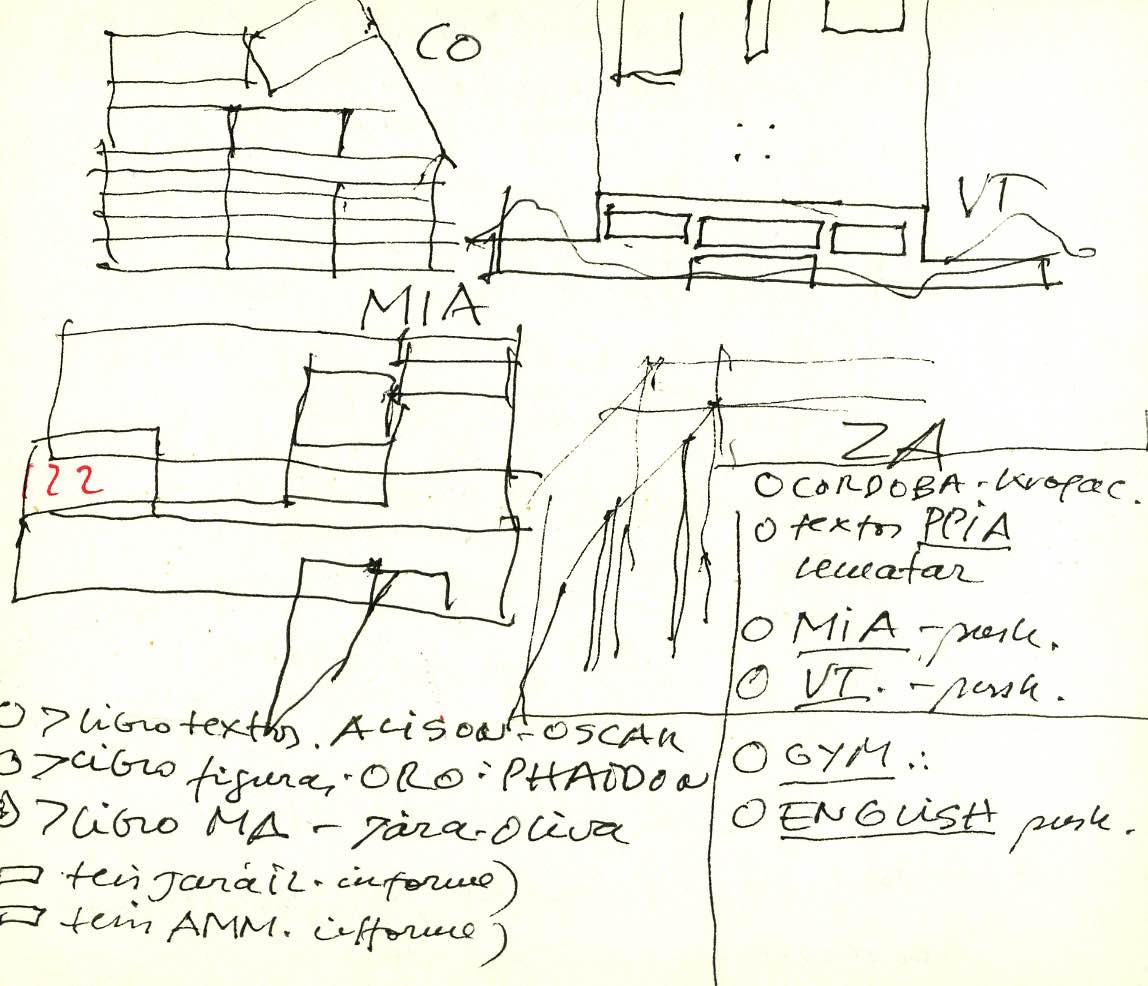 CO
VT
MIA
122
ZA
CORDOBA - Kropac.
textos PPIA
rematar
MIA - push.
VT. - push.
> libro textos. ALISON - OSCAR
> libro figuras. ORO: PHAIDON
> libro MA - Jara-Oliva
tesis informe)
tesis AMM. informe)
GYM.:
ENGLISH push.